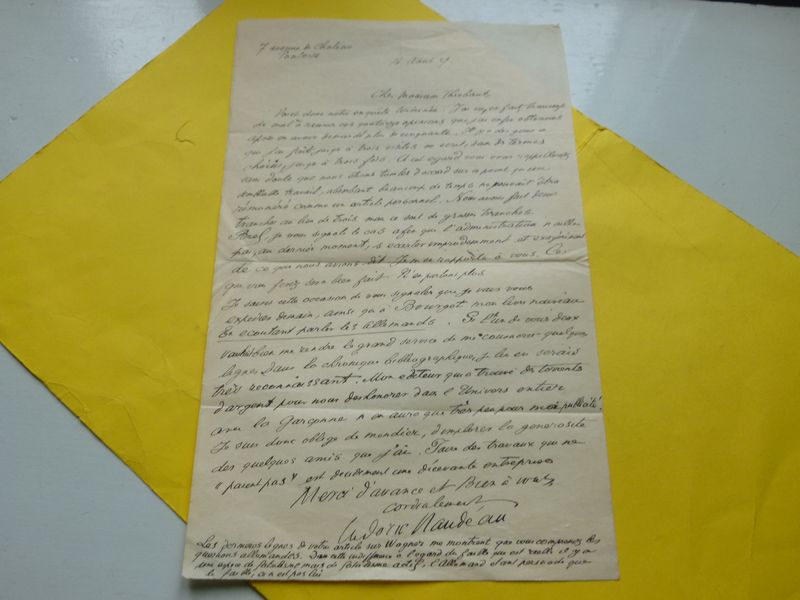 7 avenue du Chateau
16 Aout
Cher Monsieur Thiebaut
Voici donc notre enquête terminée. J'ai eu, en fait, beaucoup
de mal à réunir ces quatorze opinions que j'ai enfin obtenues
après en avoir demandé plus de cinquante. Il y a des gens à
qui j'ai fait jusqu'à trois visites ou écrit, dans des termes
choisis, jusqu'à trois fois. A cet égard vous vous rappellerez
sans doute que nous étions tombés d'accord sur ce point qu'un
semblable travail, absorbant beaucoup de temps ne pouvait être
rémunéré comme un article personnel. Nous avons fait deux
tranches au lieu de trois mais ce sont de grosses tranches.
Bref, je vous signale le cas afin que l'administration n'aille
pas, au dernier moment, s'écarter imprudemment
de ce que nous avions dit. Je m'en rapporte à vous. Ce
que vous ferez sera bien fait. N'en parlons plus
Je saisis cette occasion de vous signaler que je vais vous
expédier demain, ainsi qu'à Bourget mon livre nouveau
En écoutant parler les allemands. Si l'un de vous deux
voulait bien me rendre le grand service de me consacrer quelques
lignes dans la chronique bibliographique, je lui en serais
très reconnaissant. Mon éditeur qui a trouvé des torrents
d'argent pour nous déshonorer dans l'Univers entier
avec la Garçonne n'en aura que très peu pour ma publicité!
Je suis donc obligé de mendier, d'implorer la générosité
des quelques amis que j'ai. Faire des travaux qui ne
"paient pas" est décidément une décevante entreprise
Merci d'avance et Bien à vous
cordialement
Ludovic Naudeau
Les dernières lignes de votre article sur Wagner me montrent que vous comprenez les
questions allemandes. Dans cette indifférence à l'égard du faible qui est réelle il y a
une espèce de fatalisme mais de fatalisme actif, l'allemand étant persuadé que
le faible, ce n'est pas lui